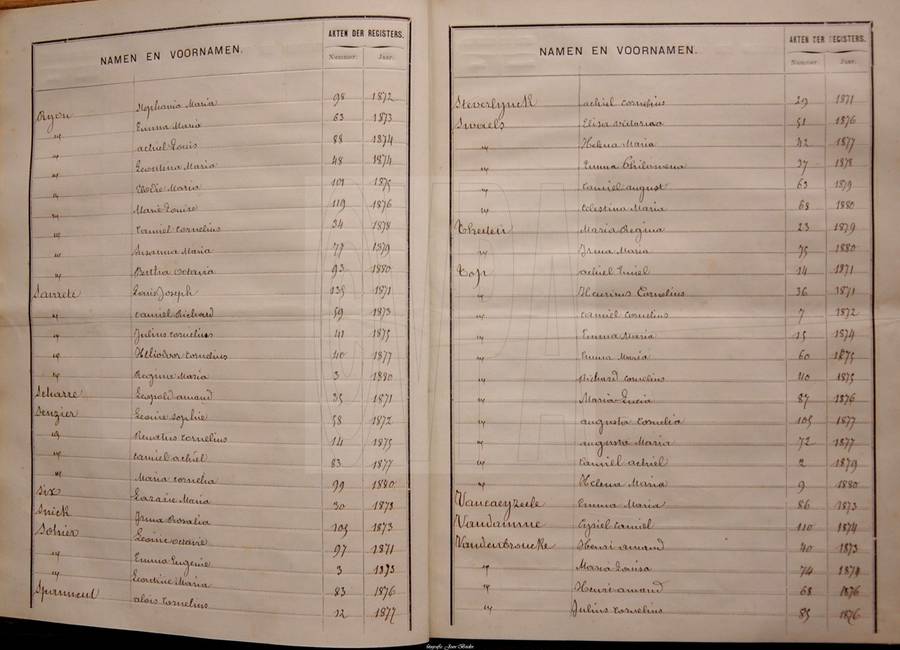 NAMEN EN VOORNAMEN. AKTEN DER REGISTERS.
Nummer. Jaar.
Ryon Stephania Maria 98 1872
" Emma Maria 63 1873
" achiel Louis 88 1874
" Leontina Maria 48 1874
" Maria 101 1875
" Marie Louise 119 1876
" Camiel Cornelius 34 1878
" Susanna Maria 77 1879
" Bertha Octavia 93 1880
Sarrete Louis Joseph 135 1871
" Camiel Richard 59 1873
" Julius Cornelius 41 1875
" Heliodoor Cornelius 40 1877
" Regime Maria 3 1880
Scharre Leopold amand 35 1871
Senzier Leonie Sophie 58 1872
" Renatus Cornelius 14 1875
" Camiel achiel 83 1877
" Maria Cornelia 99 1880
Six Maria 30 1873
Snick Irma Rosalia 105 1873
Sohier Leonie octavie 97 1871
" Emma Eugenie 3 1873
" Leontine Maria 83 1876
alois Cornelius 12 1877
NAMEN EN VOORNAMEN. AKTEN DER REGISTERS.
Nummer. Jaar.
Steverlynck achiel Cornelius 29 1871
Swaels Elisa Victorina 51 1876
" Helena Maria 42 1877
" Emma Philomena 37 1878
" Camiel august 63 1879
" Celestina Maria 68 1880
Maria Regina 23 1879
" Irma Maria 75 1880
Top achiel Emiel 14 1871
" Henricus Cornelius 36 1871
" Camiel Cornelius 7 1872
" Emma Maria 15 1874
" Emma Maria 60 1875
" Richard Cornelius 40 1875
" Maria Lucia 87 1876
" augusta Cornelia 105 1877
" augusta Maria 72 1877
" Camiel achiel 2 1879
" Helena Maria 9 1880
Vancaeyzeele Emma Maria 86 1873
Vandamme Cyriel Camiel 110 1874
Vandenbroucke Henri amand 40 1873
" Maria Louisa 74 1874
" Henri amand 68 1876
" Julius Cornelius 85 1876